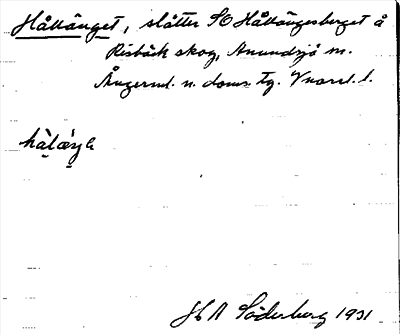 Hållänget, slåtter SO Hållängesberget å
Risbäck skog, Anundsjö sn.
Ångerml. n. doms. tg. Vnorrl. l.
hàlæŋe
H A Söderberg 1931